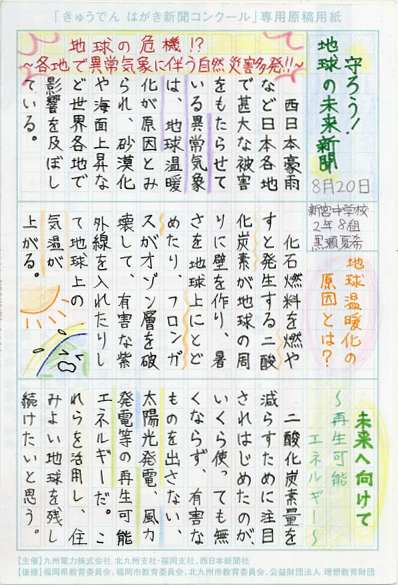 「きゅうでん はがき新聞コンクール」専用原稿用紙
守ろう!
地球の未来新聞
8月20日
新宮中学校
2年8組
黒瀬夏希
地球の危機!?
~各地で異常気象に伴う自然災害多発!!~
西日本豪雨
など日本各地
で甚大な被害
をもたらせて
いる異常気象
は、地球温暖
化が原因とみ
られ、砂漠化
や海面上昇な
ど世界各地で
影響を及ぼし
ている。
地球温暖化の
原因とは?
化石燃料を燃や
すと発生する二酸
化炭素が地球の周
りに壁を作り、暑
さを地球上にとど
めたり、フロンガ
スがオゾン層を破
壊して、有害な紫
外線を入れたりし
て地球上の
気温が
上がる。
未来へ向けて
~再生可能
エネルギー~
二酸化炭素量を
減らすために注目
されはじめたのが
いくら使っても無
くならず、有害な
ものを出さない、
太陽光発電、風力
発電等の再生可能
エネルギーだ。こ
れらを活用し、住
みよい地球を残し
続けたいと思う。
【主催】九州電力株式会社 北九州支社・福岡支社、西日本新聞社
【後援】福岡県教育委員会、福岡市教育委員会、北九州市教育委員会、公益財団法人 理想教育財団